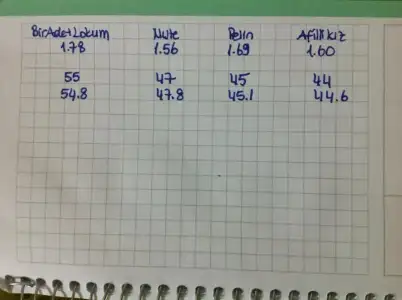 BirAdetLokum Nule Pelin Afilli kız
1.78 1.56 1.69 1.60
55 47 45 44
54.8 47.8 45.1 44.6